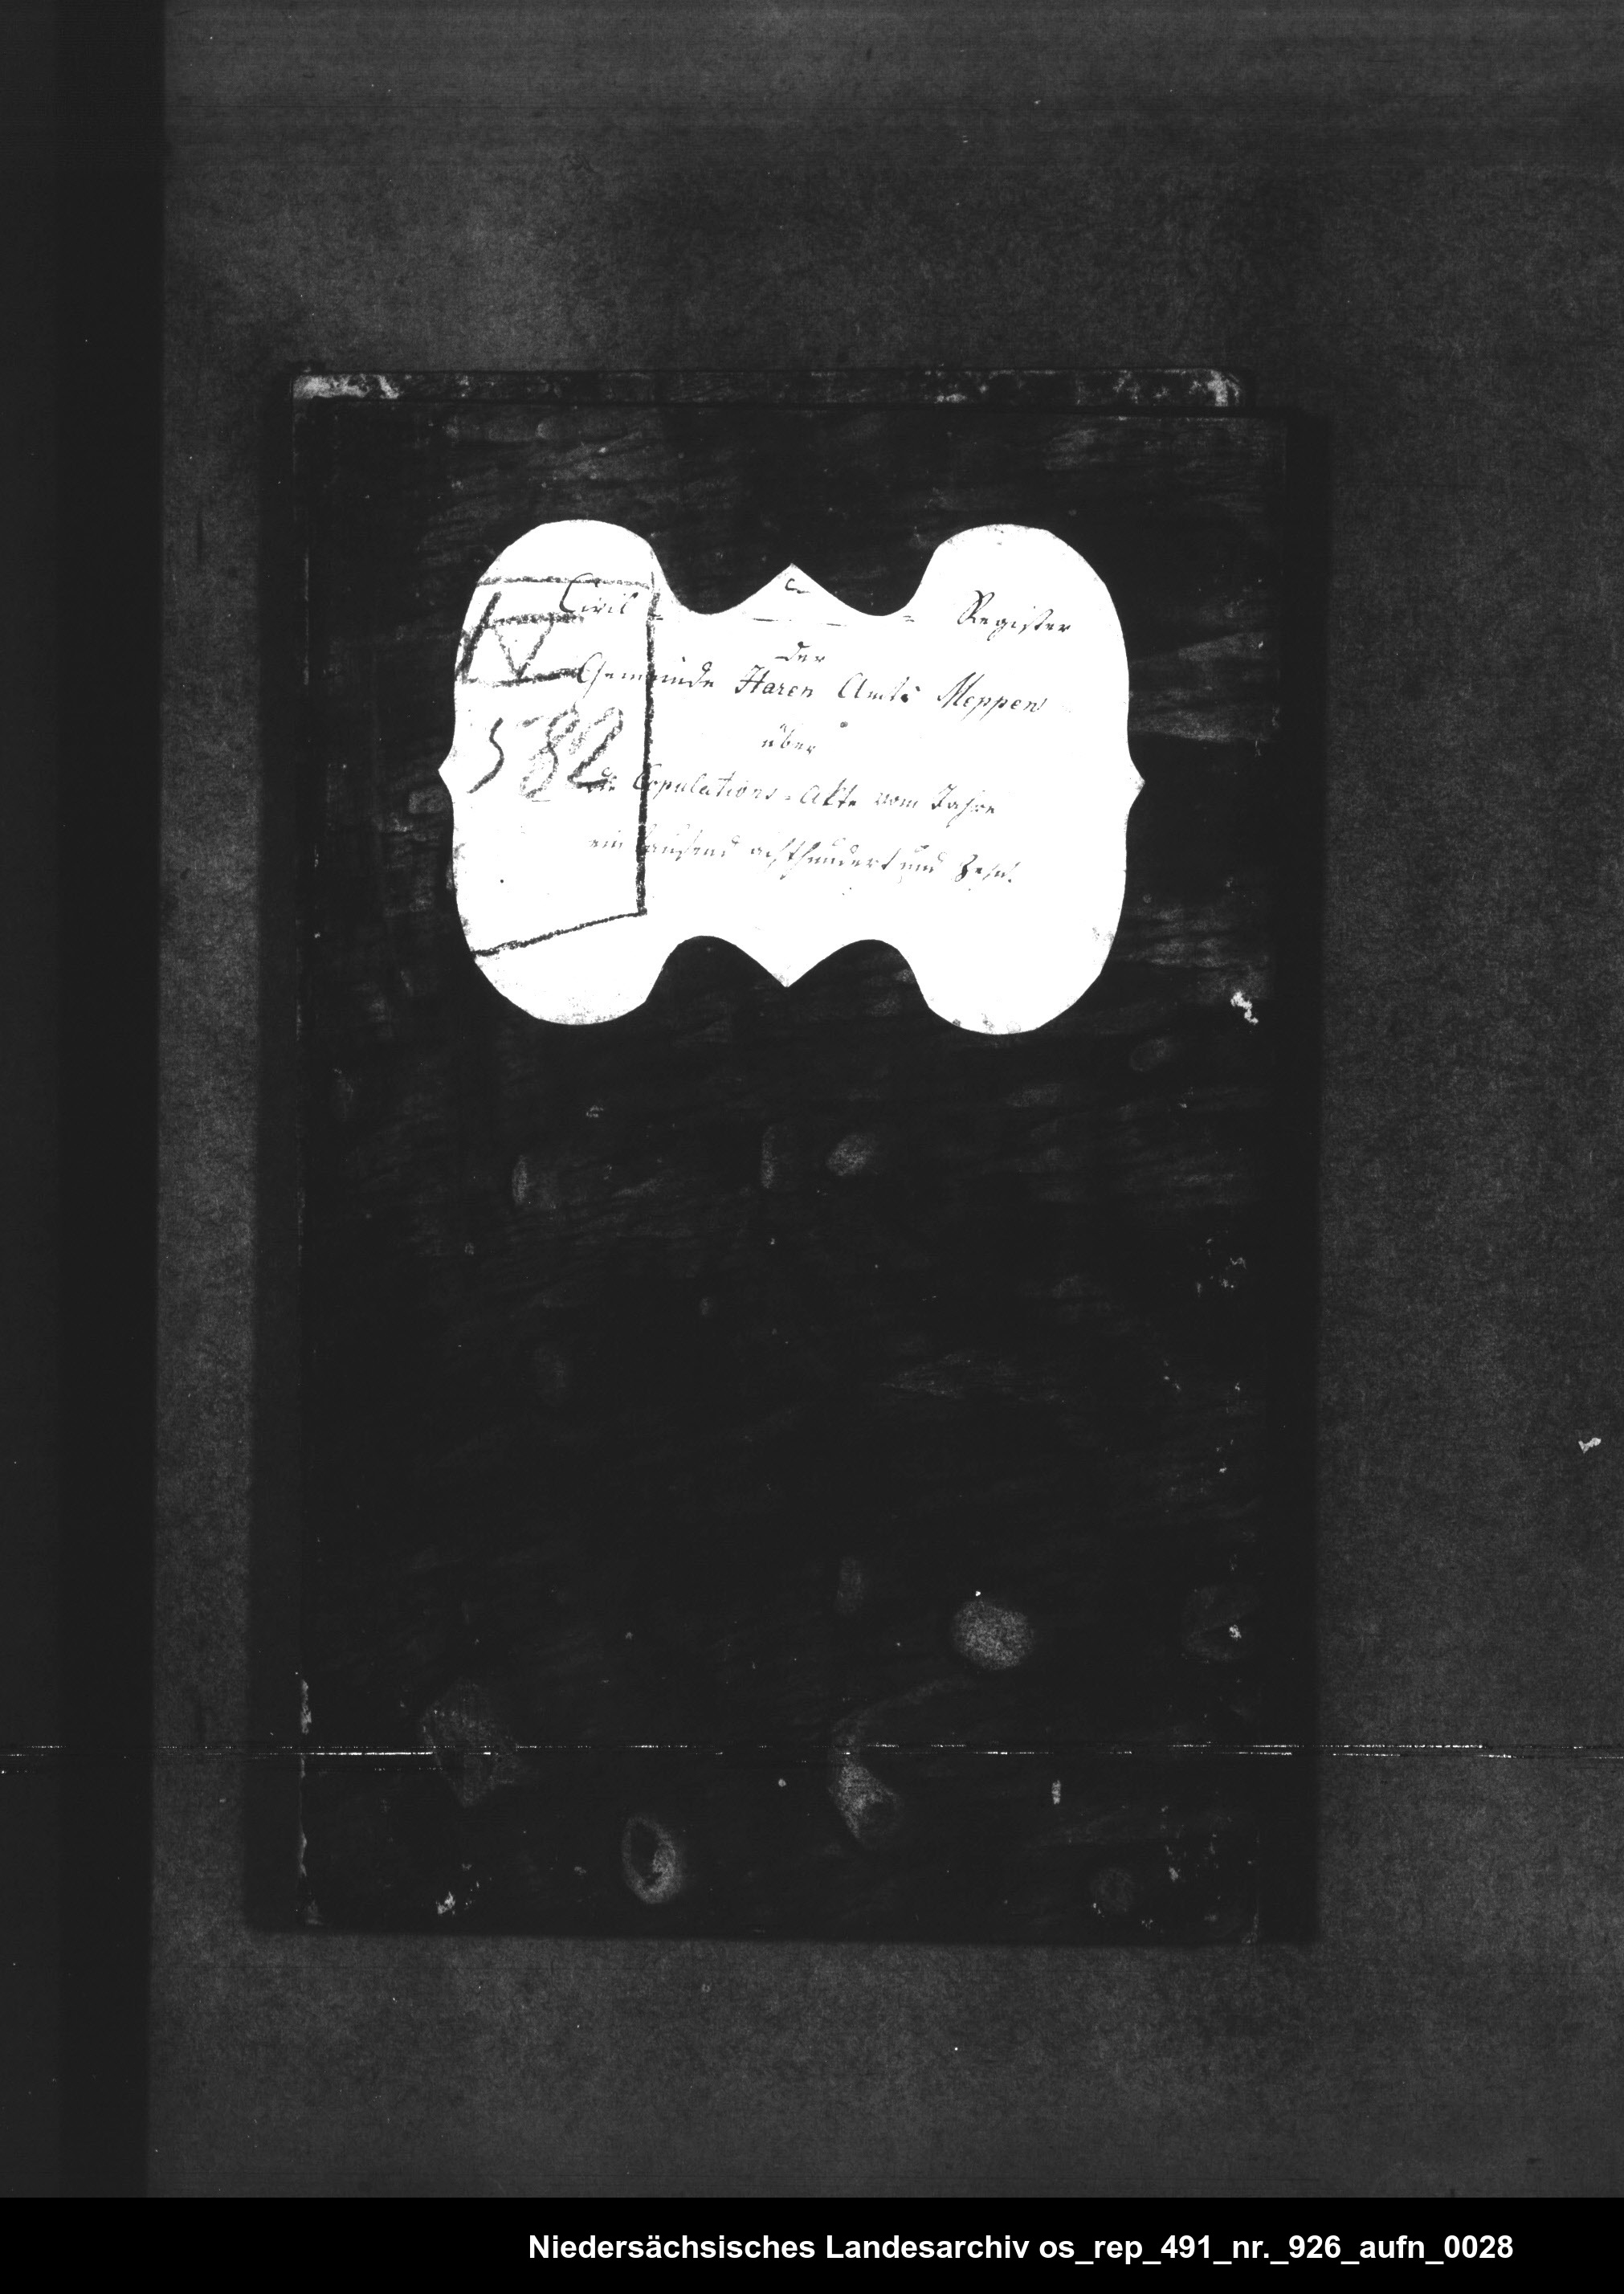 C.
Civil = Register
der
Gemeinde Haren Amts Meppen
über
die Copulations-Akte vom Jahre
ein tausend achthundert und Zehn.
IV
582
Niedersächsisches Landesarchiv os_rep_491_nr._926_aufn_0028